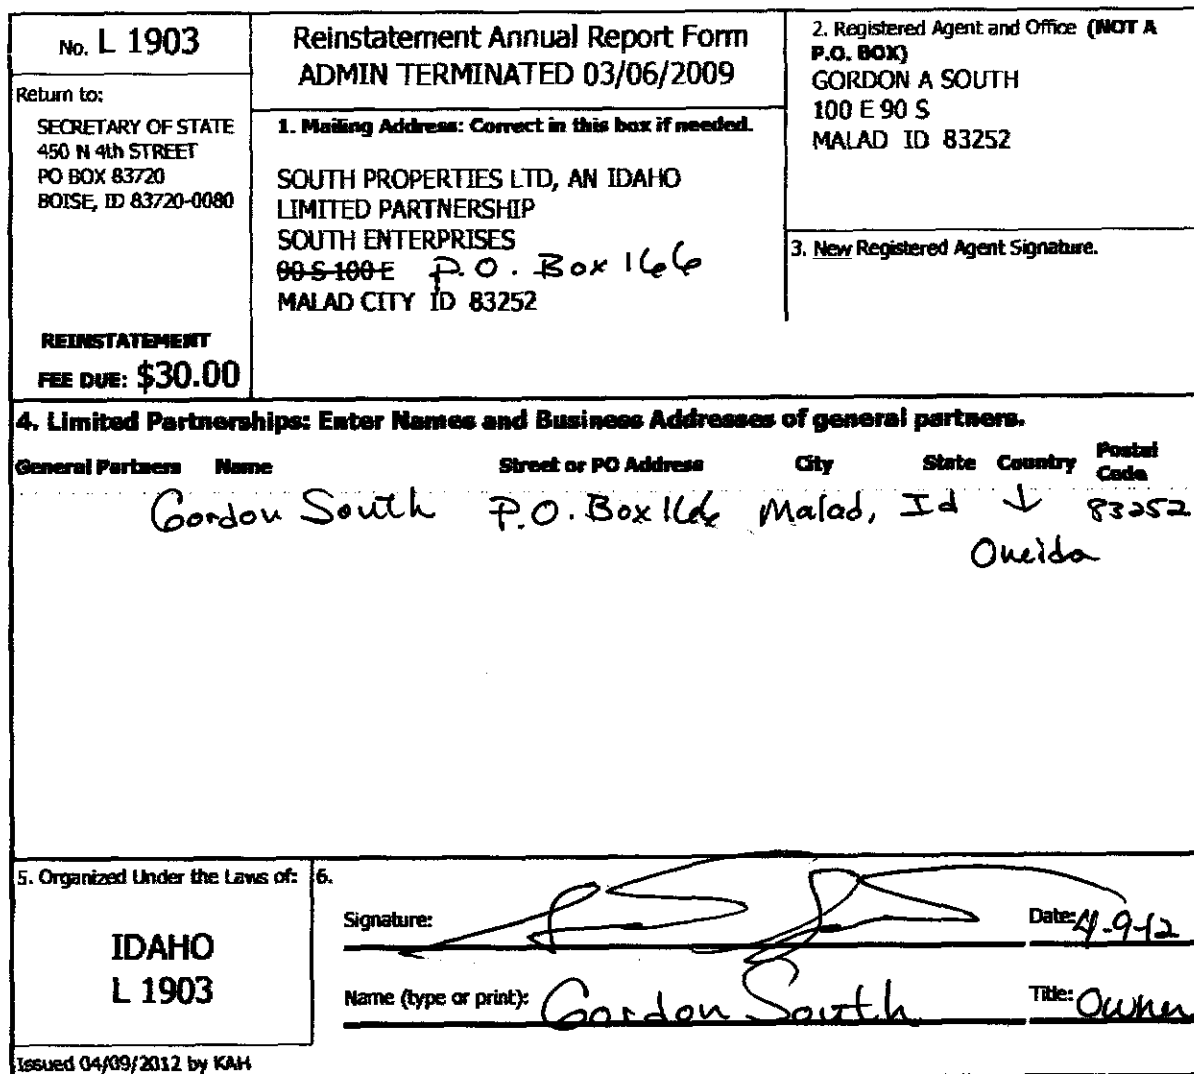 No. L 1903
Return to:
SECRETARY OF STATE
450 N 4th STREET
PO BOX 83720
BOISE, ID 83720-0080
REINSTATEMENT
FEE DUE: $30.00
Reinstatement Annual Report Form
ADMIN TERMINATED 03/06/2009
1. Mailing Address: Correct in this box if needed.
SOUTH PROPERTIES LTD, AN IDAHO
LIMITED PARTNERSHIP
SOUTH ENTERPRISES
90 S 100 E P.O. Box 166
MALAD CITY ID 83252
2. Registered Agent and Office (NOT A
P.O. BOX)
GORDON A SOUTH
100 E 90 S
MALAD ID 83252
3. New Registered Agent Signature.
4. Limited Partnerships: Enter Names and Business Addresses of general partners.
General Partners Name Street or PO Address City State Country Postal Code
Gordon South P.O. Box 166 Malad, Id ↓ 83252
Oneida
5. Organized Under the Laws of:
IDAHO
L 1903
6.
Signature: Date: 4-9-12
Name (type or print): Gordon South Title: Owner
Issued 04/09/2012 by KAH